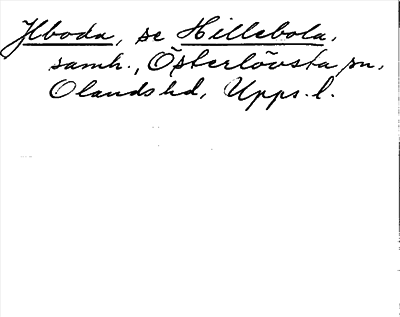 Ylboda, se Hillebola,
samh., Österlövsta sn,
Olands hd, Upps. l.